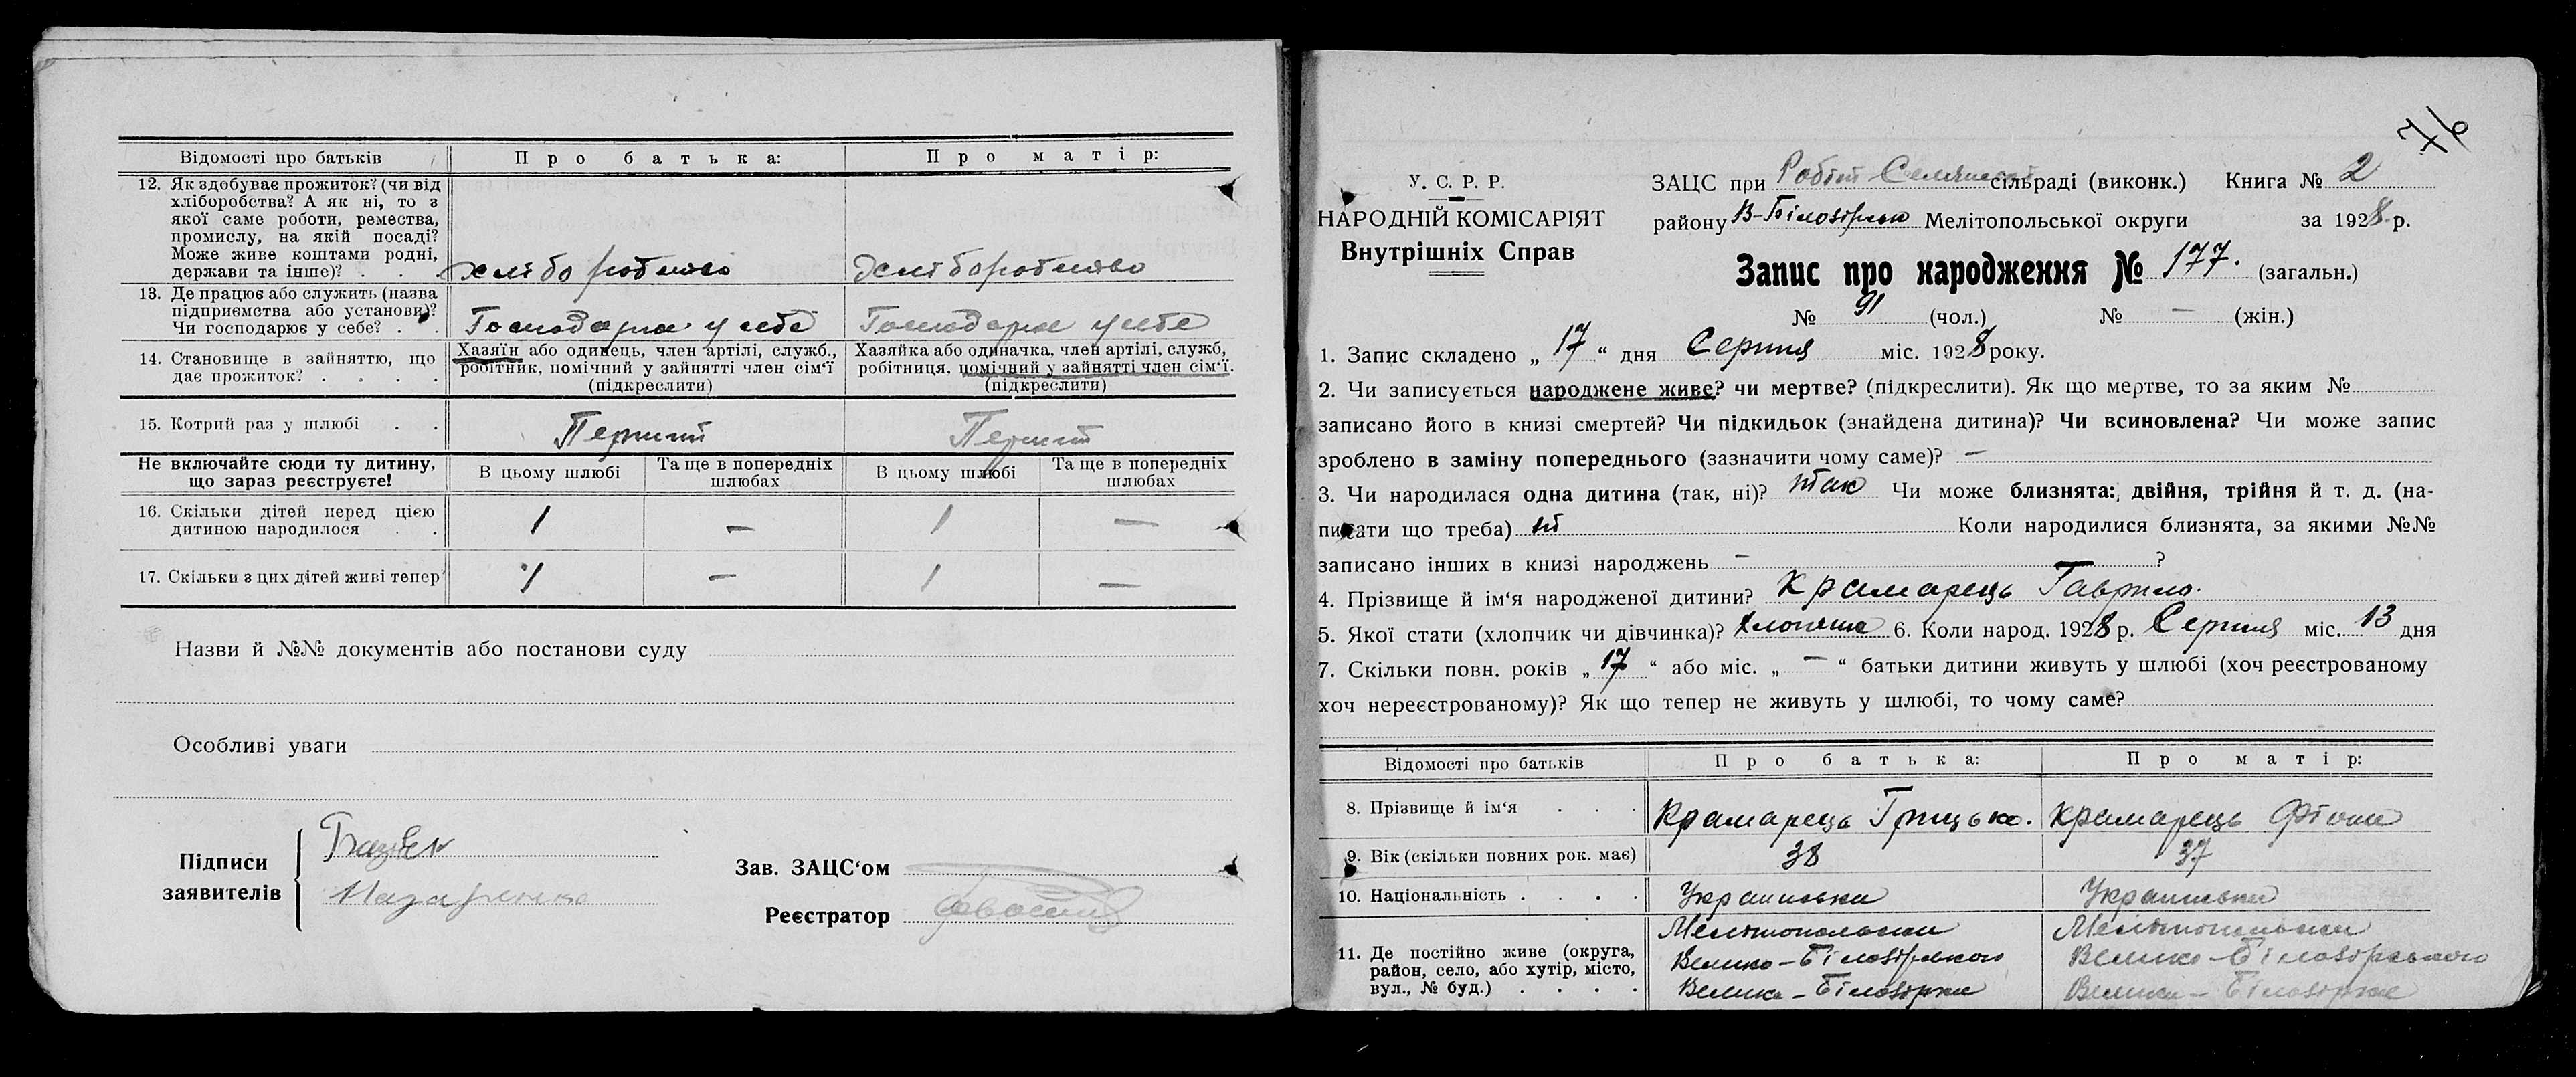 Відомості про батьків
Про батька:
Про матір:
12. Як здобуває прожиток? (чи від хліборобства? А як ні, то з якої саме роботи, ремества, промислу, на якій посаді? Може живе коштами родні, держави та інше)? . . .
хліборобство
хліборобство
13. Де працює або служить (назва підприємства або установи)? Чи господарює у себе? . .
Господарює у себе
Господарює у себе
14. Становище в зайняттю, що дає прожиток? . . . .
Хазяїн або одинець, член артілі, служб., робітник, помічний у зайнятті член сім'ї (підкреслити)
Хазяйка або одиначка, член артілі, служб, робітниця, помічний у зайнятті член сім'ї. (підкреслити)
15. Котрий раз у шлюбі . .
Перший
Перший
Не включайте сюди ту дитину, що зараз реєструєте!
В цьому шлюбі
Та ще в попередніх шлюбах
В цьому шлюбі
Та ще в попередніх шлюбах
16. Скільки дітей перед цією дитиною народилося . .
1 — 1 —
17. Скільки з цих дітей живі тепер?
1 — 1 —
Назви й №№ документів або постанови суду
Особливі уваги
Підписи заявителів
Зав. ЗАЦС'ом
Реєстратор
76
У. С. Р. Р.
НАРОДНІЙ КОМІСАРІЯТ
Внутрішніх Справ
ЗАЦС при сільраді (виконк.) Книга № 2
району В-Білозірськ Мелітопольської округи за 1928 р.
Запис про народження № 177. (загальн.)
№ 91 (чол.) № — (жін.)
1. Запис складено „ 17 “ дня Серпня міс. 1928 року.
2. Чи записується народжене живе? чи мертве? (підкреслити). Як що мертве, то за яким №
записано його в книзі смертей? Чи підкидьок (знайдена дитина)? Чи всиновлена? Чи може запис
зроблено в заміну попереднього (зазначити чому саме)? —
3. Чи народилася одна дитина (так, ні)? так Чи може близнята: двійня, трійня й т. д. (на-
писати що треба) ні Коли народилися близнята, за якими №№
записано інших в книзі народжень — ?
4. Прізвище й ім'я народженої дитини? Крамарець Гаврило.
5. Якої стати (хлопчик чи дівчинка)? 6. Коли народ. 1928 р. Серпня міс. 13 дня
7. Скільки повн. років „ 17 “ або міс. „ — “ батьки дитини живуть у шлюбі (хоч реєстрованому
хоч нереєстрованому)? Як що тепер не живуть у шлюбі, то чому саме?
Відомості про батьків
Про батька:
Про матір:
8. Прізвище й ім'я . . .
Крамарець Грицько.
Крамарець
9. Вік (скільки повних рок. має)
38
37
10. Національність . . . .
11. Де постійно живе (округа, район, село, або хутір, місто, вул., № буд.) . . . .
Велико-Білозірського
Велика-Білозірка
Велико-Білозірського
Велика-Білозірка